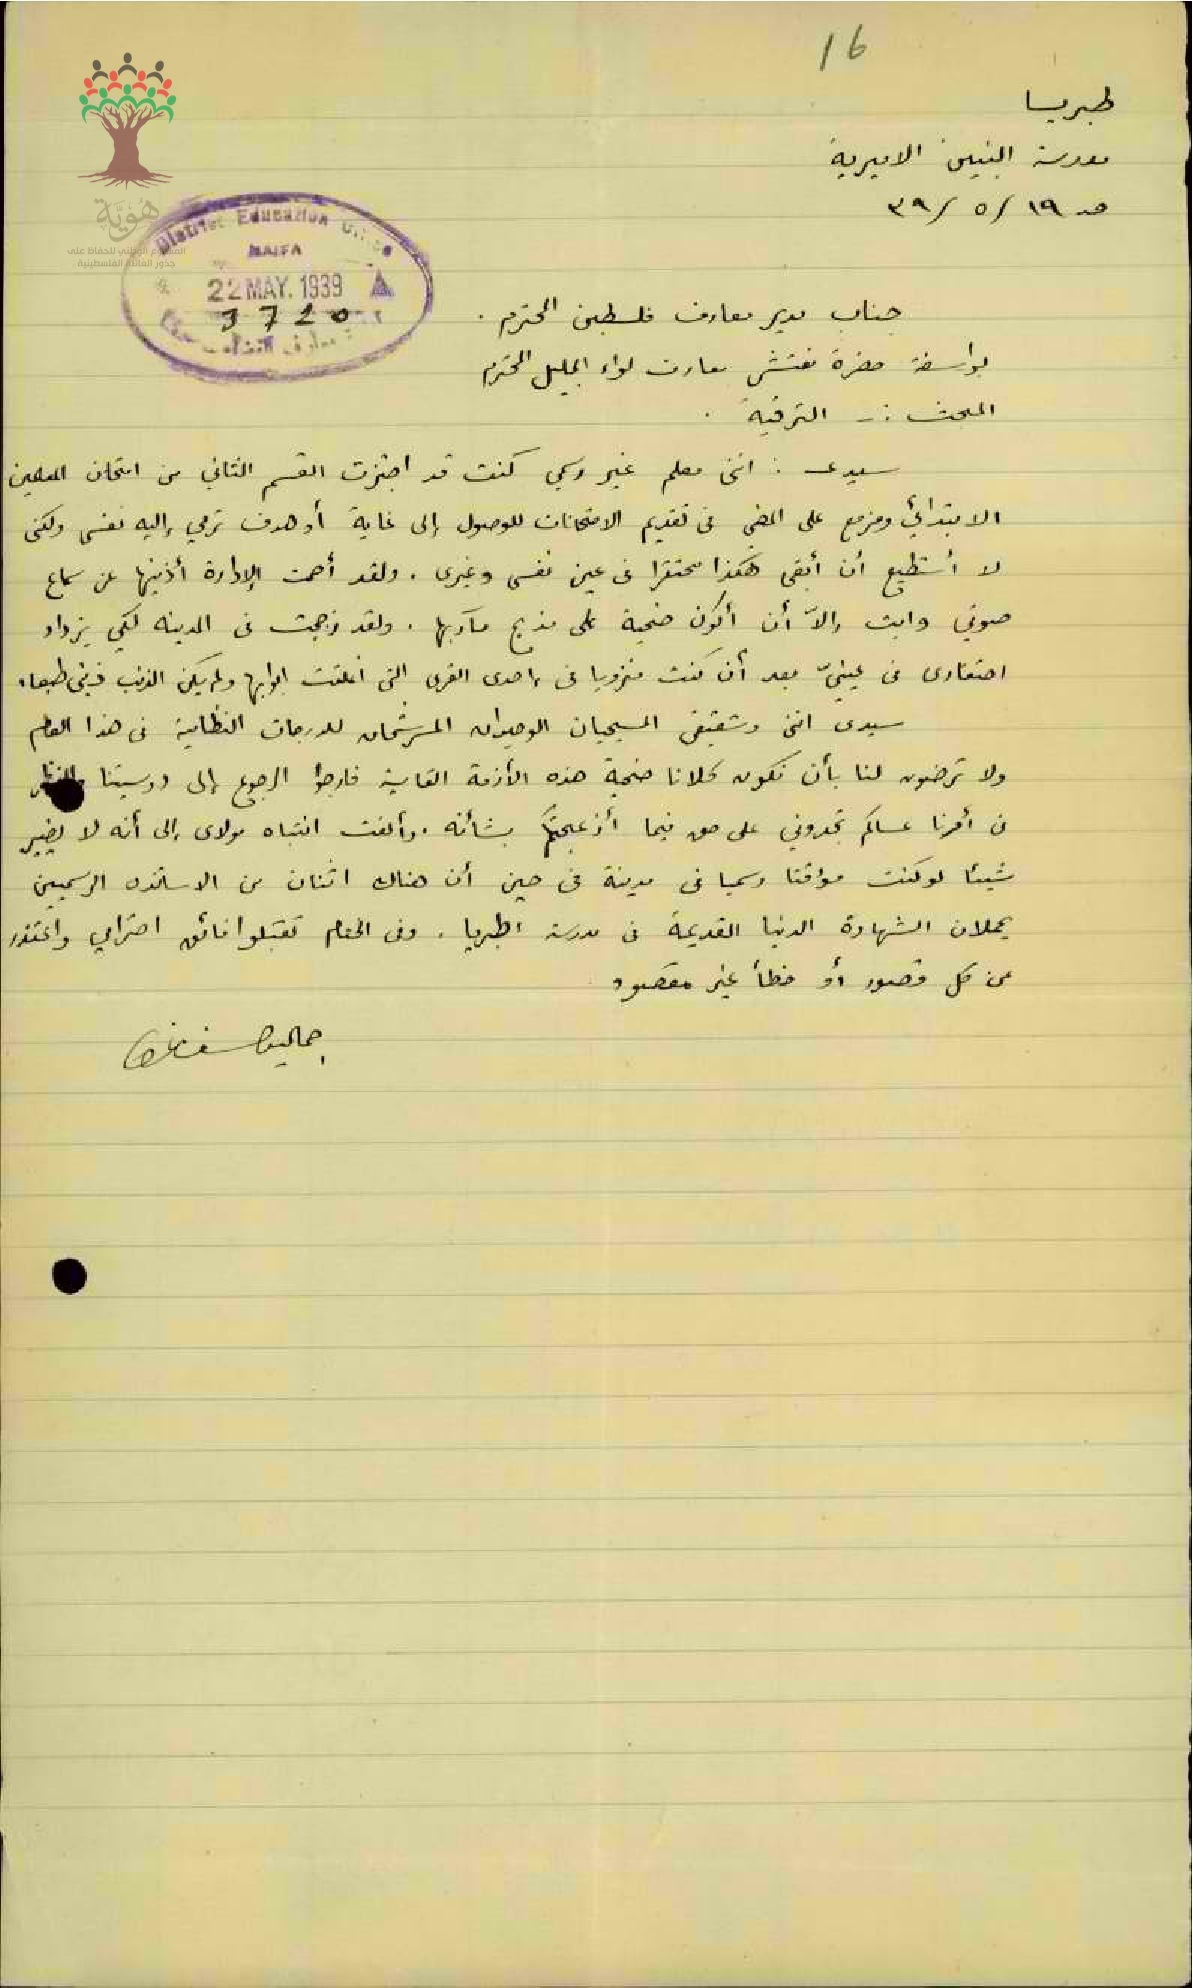 16
طبريا
مدرسة البنين الاميرية
١٩ / ٥ / ٣٩
هُوِيَّة
المشروع الوطني للحفاظ على
جذور العائلة الفلسطينية
District Education
HAIFA
22 MAY. 1939
3720
معارف
جناب مدير معارف فلسطين المحترم .
بواسطة حضرة مفتش معارف لواء الجليل المحترم
المبحث :ـ الترقية .
سيدي : انني معلم غير رسمي كنت قد اجتزت القسم الثاني من امتحان المعلمين
الابتدائي ومزمع على المضي في تقديم الامتحانات للوصول إلى غاية أو هدف ترمي إليه نفسي ولكني
لا أستطيع أن أبقى هكذا محتقرا في عين نفسي وغيري . ولقد أصمت الإدارة أذنيها عن سماع
صوتي وابت إلاّ أن أكون ضحية على مذبح مآربها . ولقد زججت في المدينه لكي يزداد
احتقاري في عينيّ بعد أن كنت منزويا في إحدى القرى التي أغلقت ابوابها ولم يكن الذنب ذنبي طبعا .
سيدي انني وشقيقي المسيحيان الوحيدان المرشحان للدرجات النظامية في هذا العام
ولا ترضون لنا بأن نكون كلانا ضحية هذه الأزمة القاسية فارجو الرجوع إلى دوسيتنا والنظر
في أمرنا عساكم تجدوني على حق فيما أزعجتكم بشأنه . وألفت انتباه مولاي إلى أنه لا يضير
شيئا لو كنت مؤقتا رسميا في مدينة في حين أن هناك اثنان من الاساتذه الرسميين
يحملان الشهادة الدنيا القديمة في مدرسة طبريا . وفي الختام تقبلوا فائق احترامي واعتذر
عن كل قصور أو خطأ غير مقصود